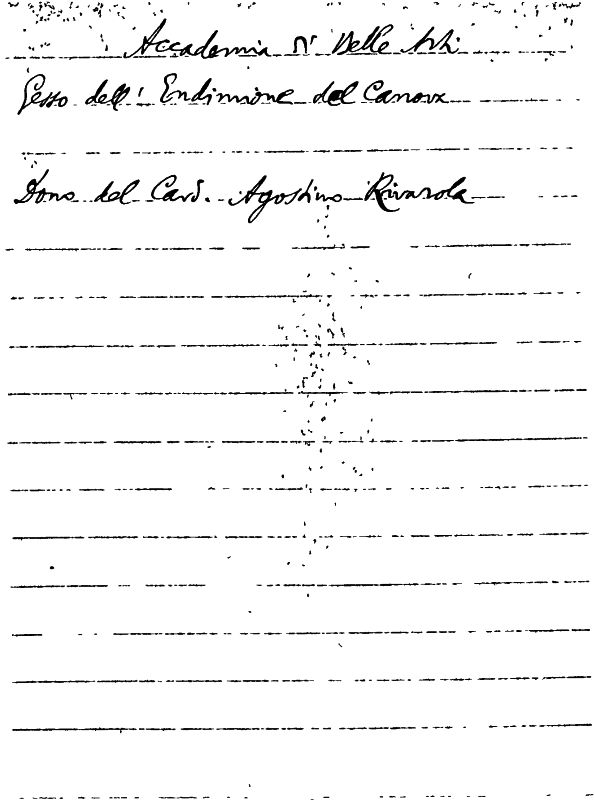 Accademia di Belle Arti
Gesso dell' Endimione del Canova
Dono del Card. Agostino Rivarola